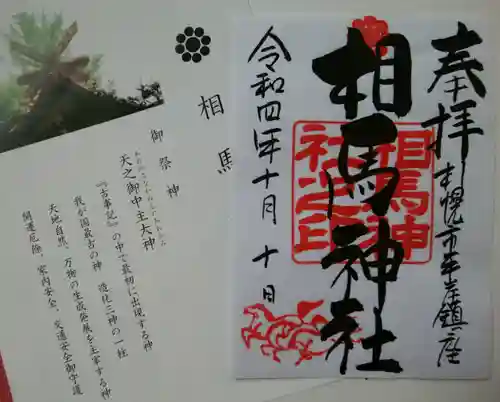 奉拝
札幌市平岸鎮座
相馬神社
相馬神社之印
令和四年十月十日
相馬
御祭神
天之御中主大神
『古事記』の中で最初に出現する神
我が国最古の神 造化三神の一柱
天地自然、万物の生成発展を主宰する神
開運厄除、家内安全、交通安全御守護